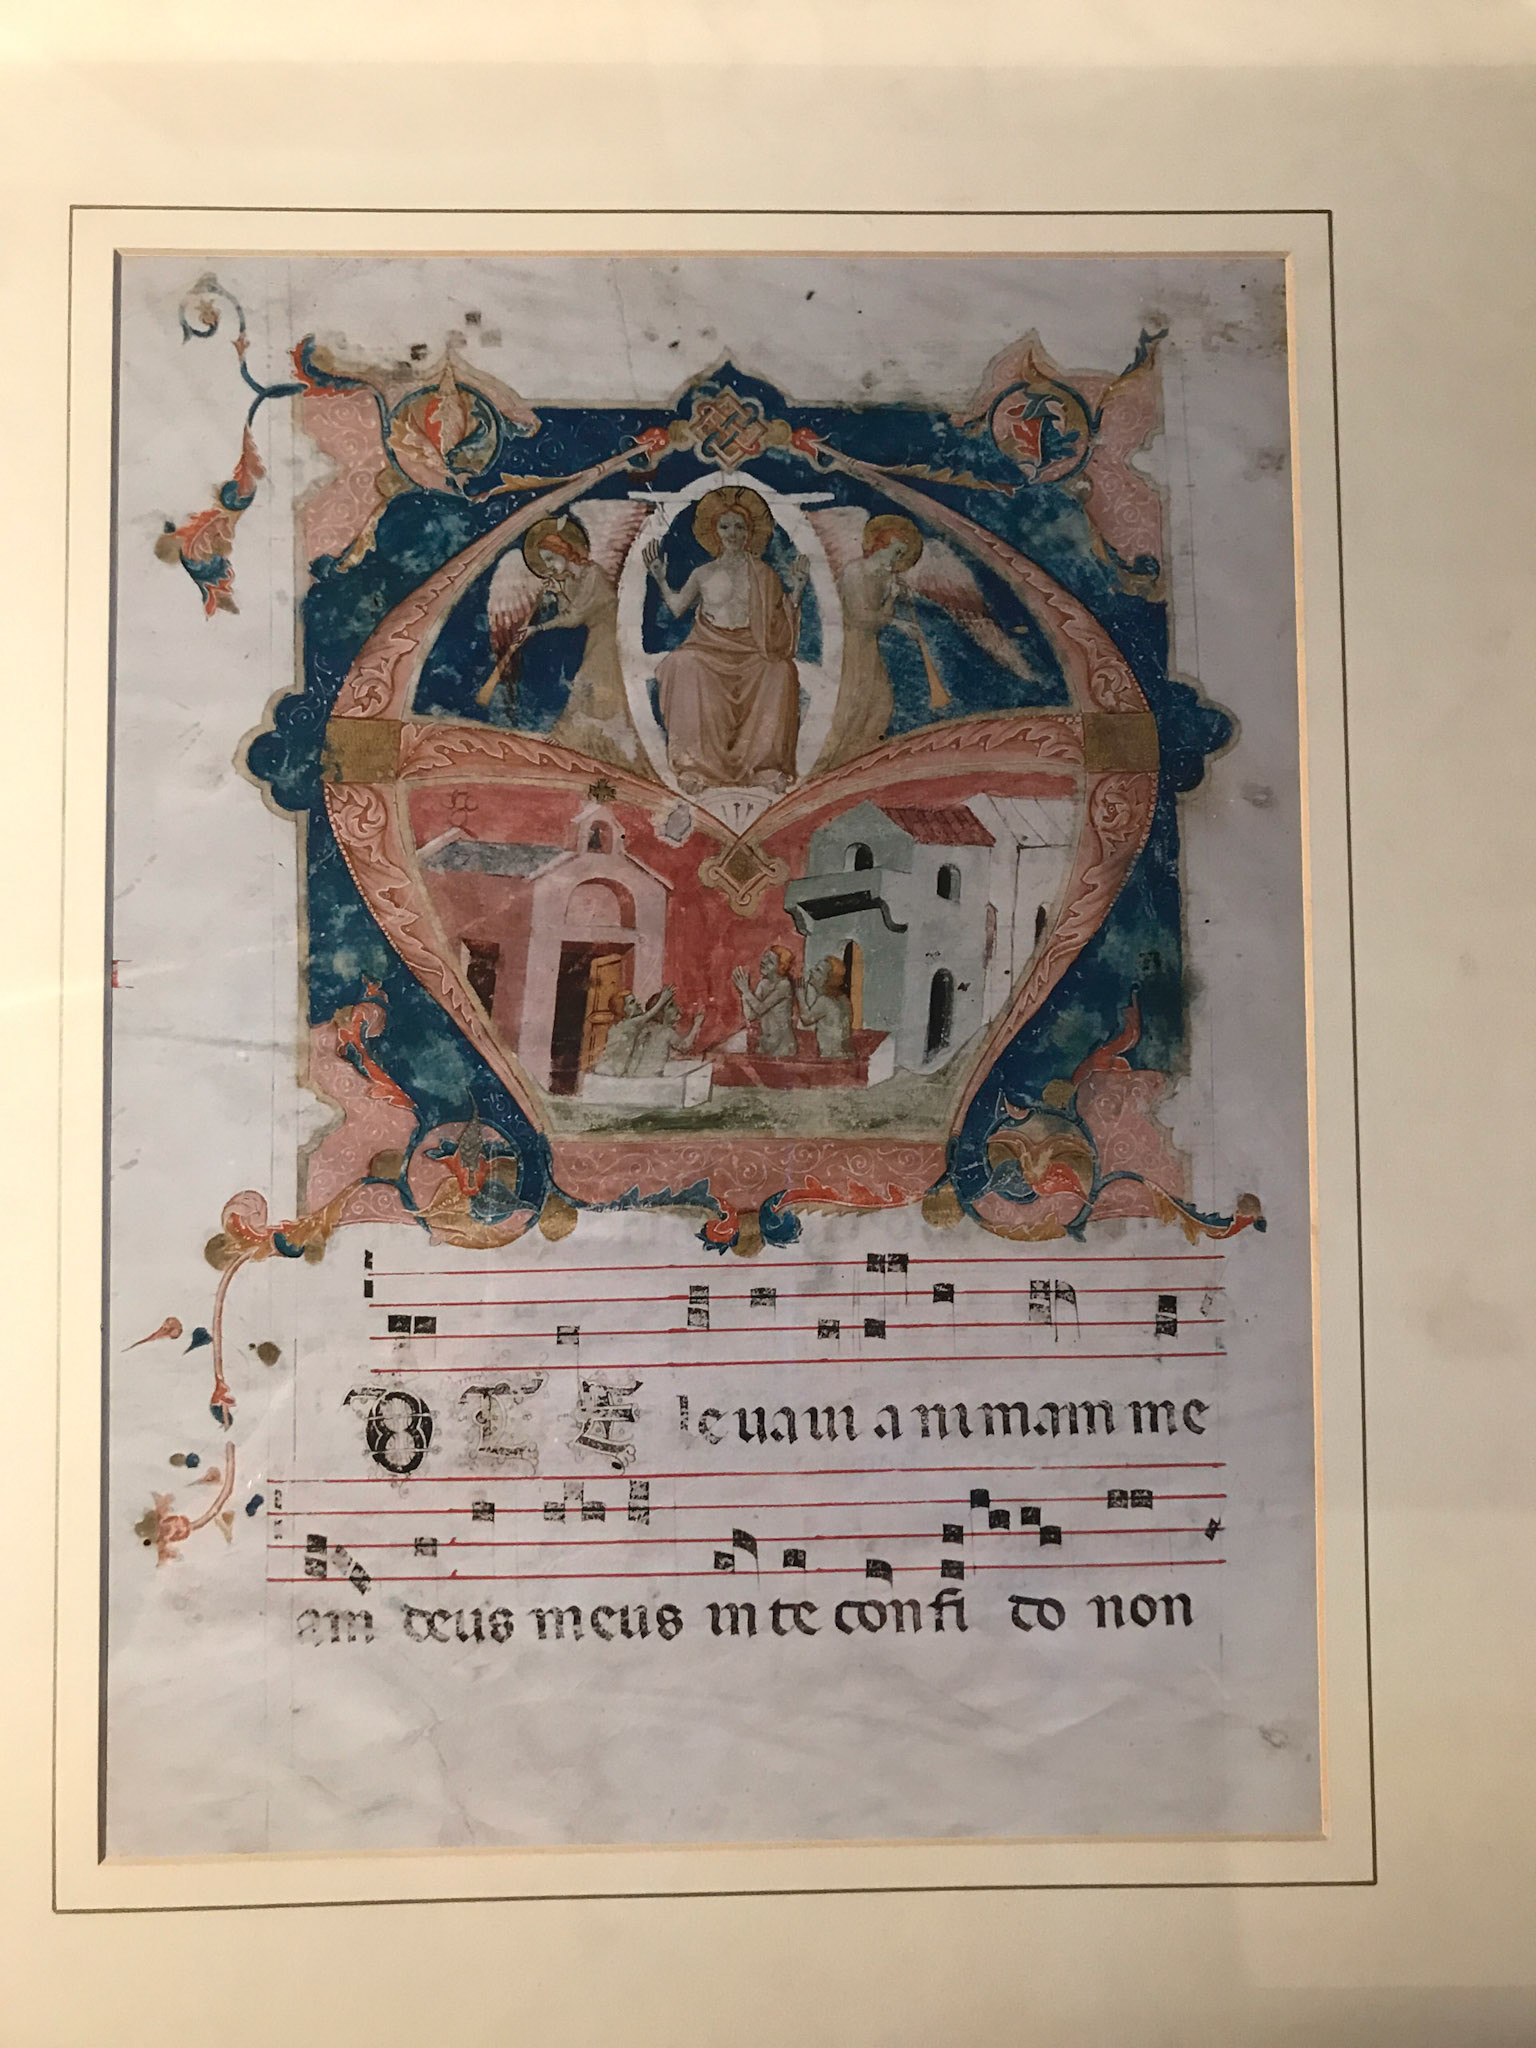 D TE levavi animam me
am deus meus in te confi do non